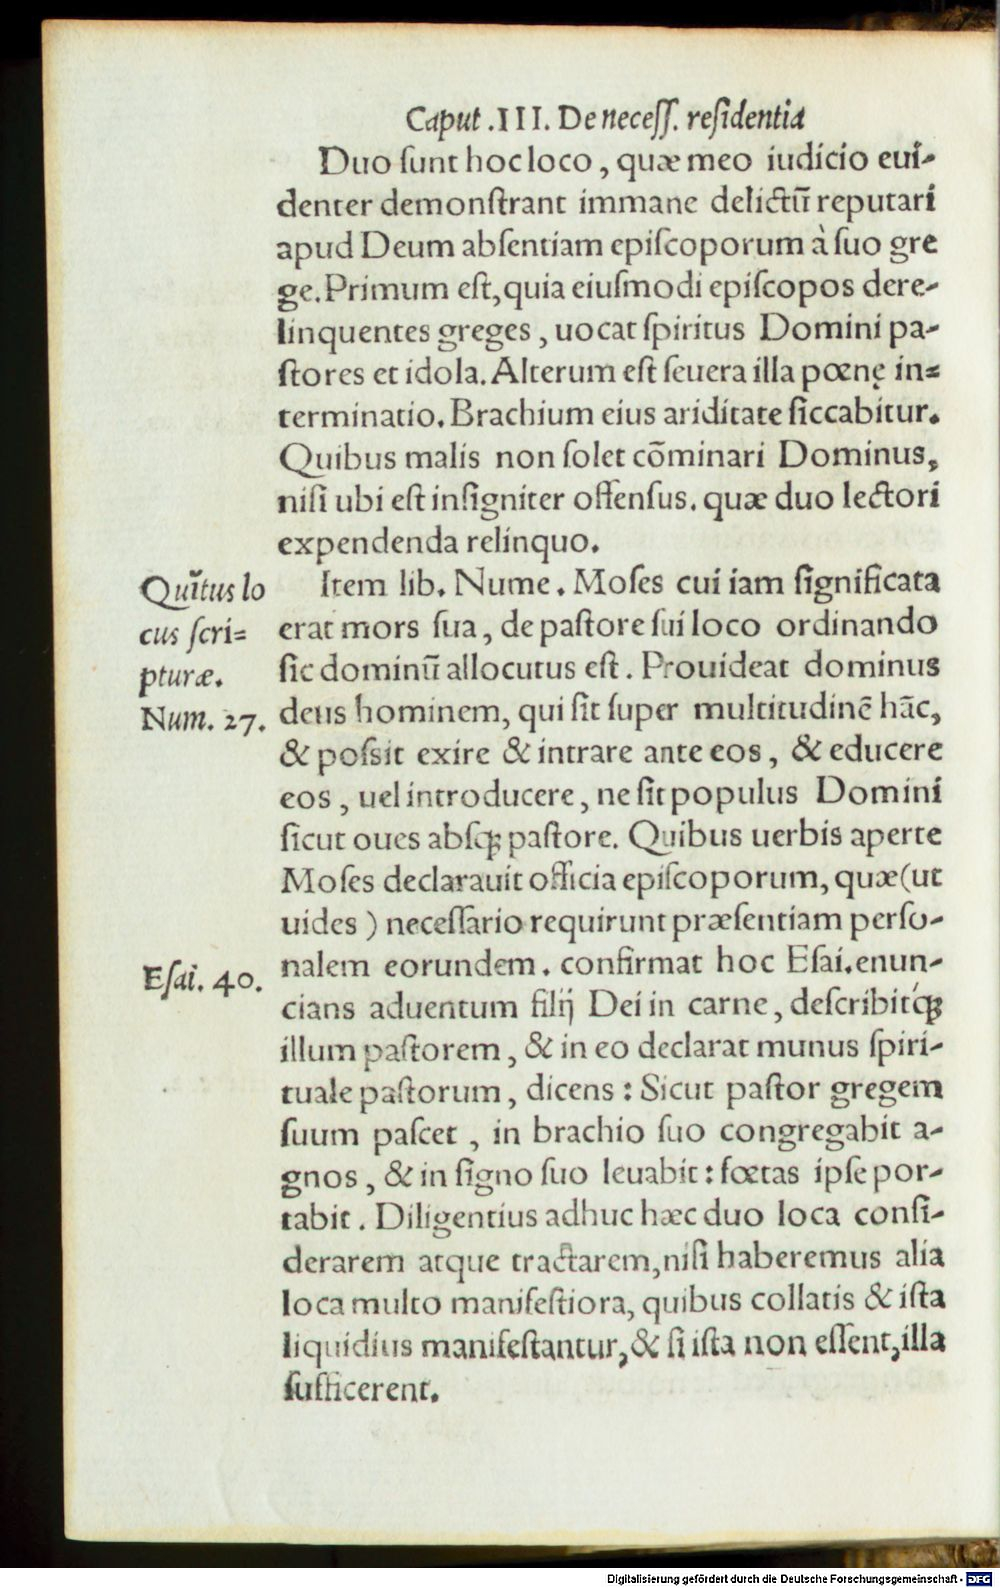 Caput .III. De necess. residentia
Duo sunt hoc loco, quæ meo iudicio eui-
denter demonstrant immane delictũ reputari
apud Deum absentiam episcoporum à suo gre
ge. Primum est, quia eiusmodi episcopos dere-
linquentes greges, uocat spiritus Domini pa-
stores et idola. Alterum est seuera illa pœnę in=
terminatio. Brachium eius ariditate siccabitur.
Quibus malis non solet cõminari Dominus,
nisi ubi est insigniter offensus. quæ duo lectori
expendenda relinquo.
Quĩtus lo
cus scri=
pturæ.
Num. 27.
Item lib. Nume. Moses cui iam significata
erat mors sua, de pastore sui loco ordinando
sic dominũ allocutus est. Prouideat dominus
deus hominem, qui sit super multitudinẽ hãc,
& possit exire & intrare ante eos, & educere
eos, uel introducere, ne sit populus Domini
sicut oues absq; pastore. Quibus uerbis aperte
Moses declarauit officia episcoporum, quæ (ut
uides) necessario requirunt præsentiam perso-
Esai. 40.
nalem eorundem. confirmat hoc Esai. enun-
cians aduentum filij Dei in carne, describitq́;
illum pastorem, & in eo declarat munus spiri-
tuale pastorum, dicens: Sicut pastor gregem
suum pascet, in brachio suo congregabit a-
gnos, & in signo suo leuabit: fœtas ipse por-
tabit. Diligentius adhuc hæc duo loca consi-
derarem atque tractarem, nisi haberemus alia
loca multo manifestiora, quibus collatis & ista
liquidius manifestantur, & si ista non essent, illa
sufficerent.
Digitalisierung gefördert durch die Deutsche Forschungsgemeinschaft - DFG